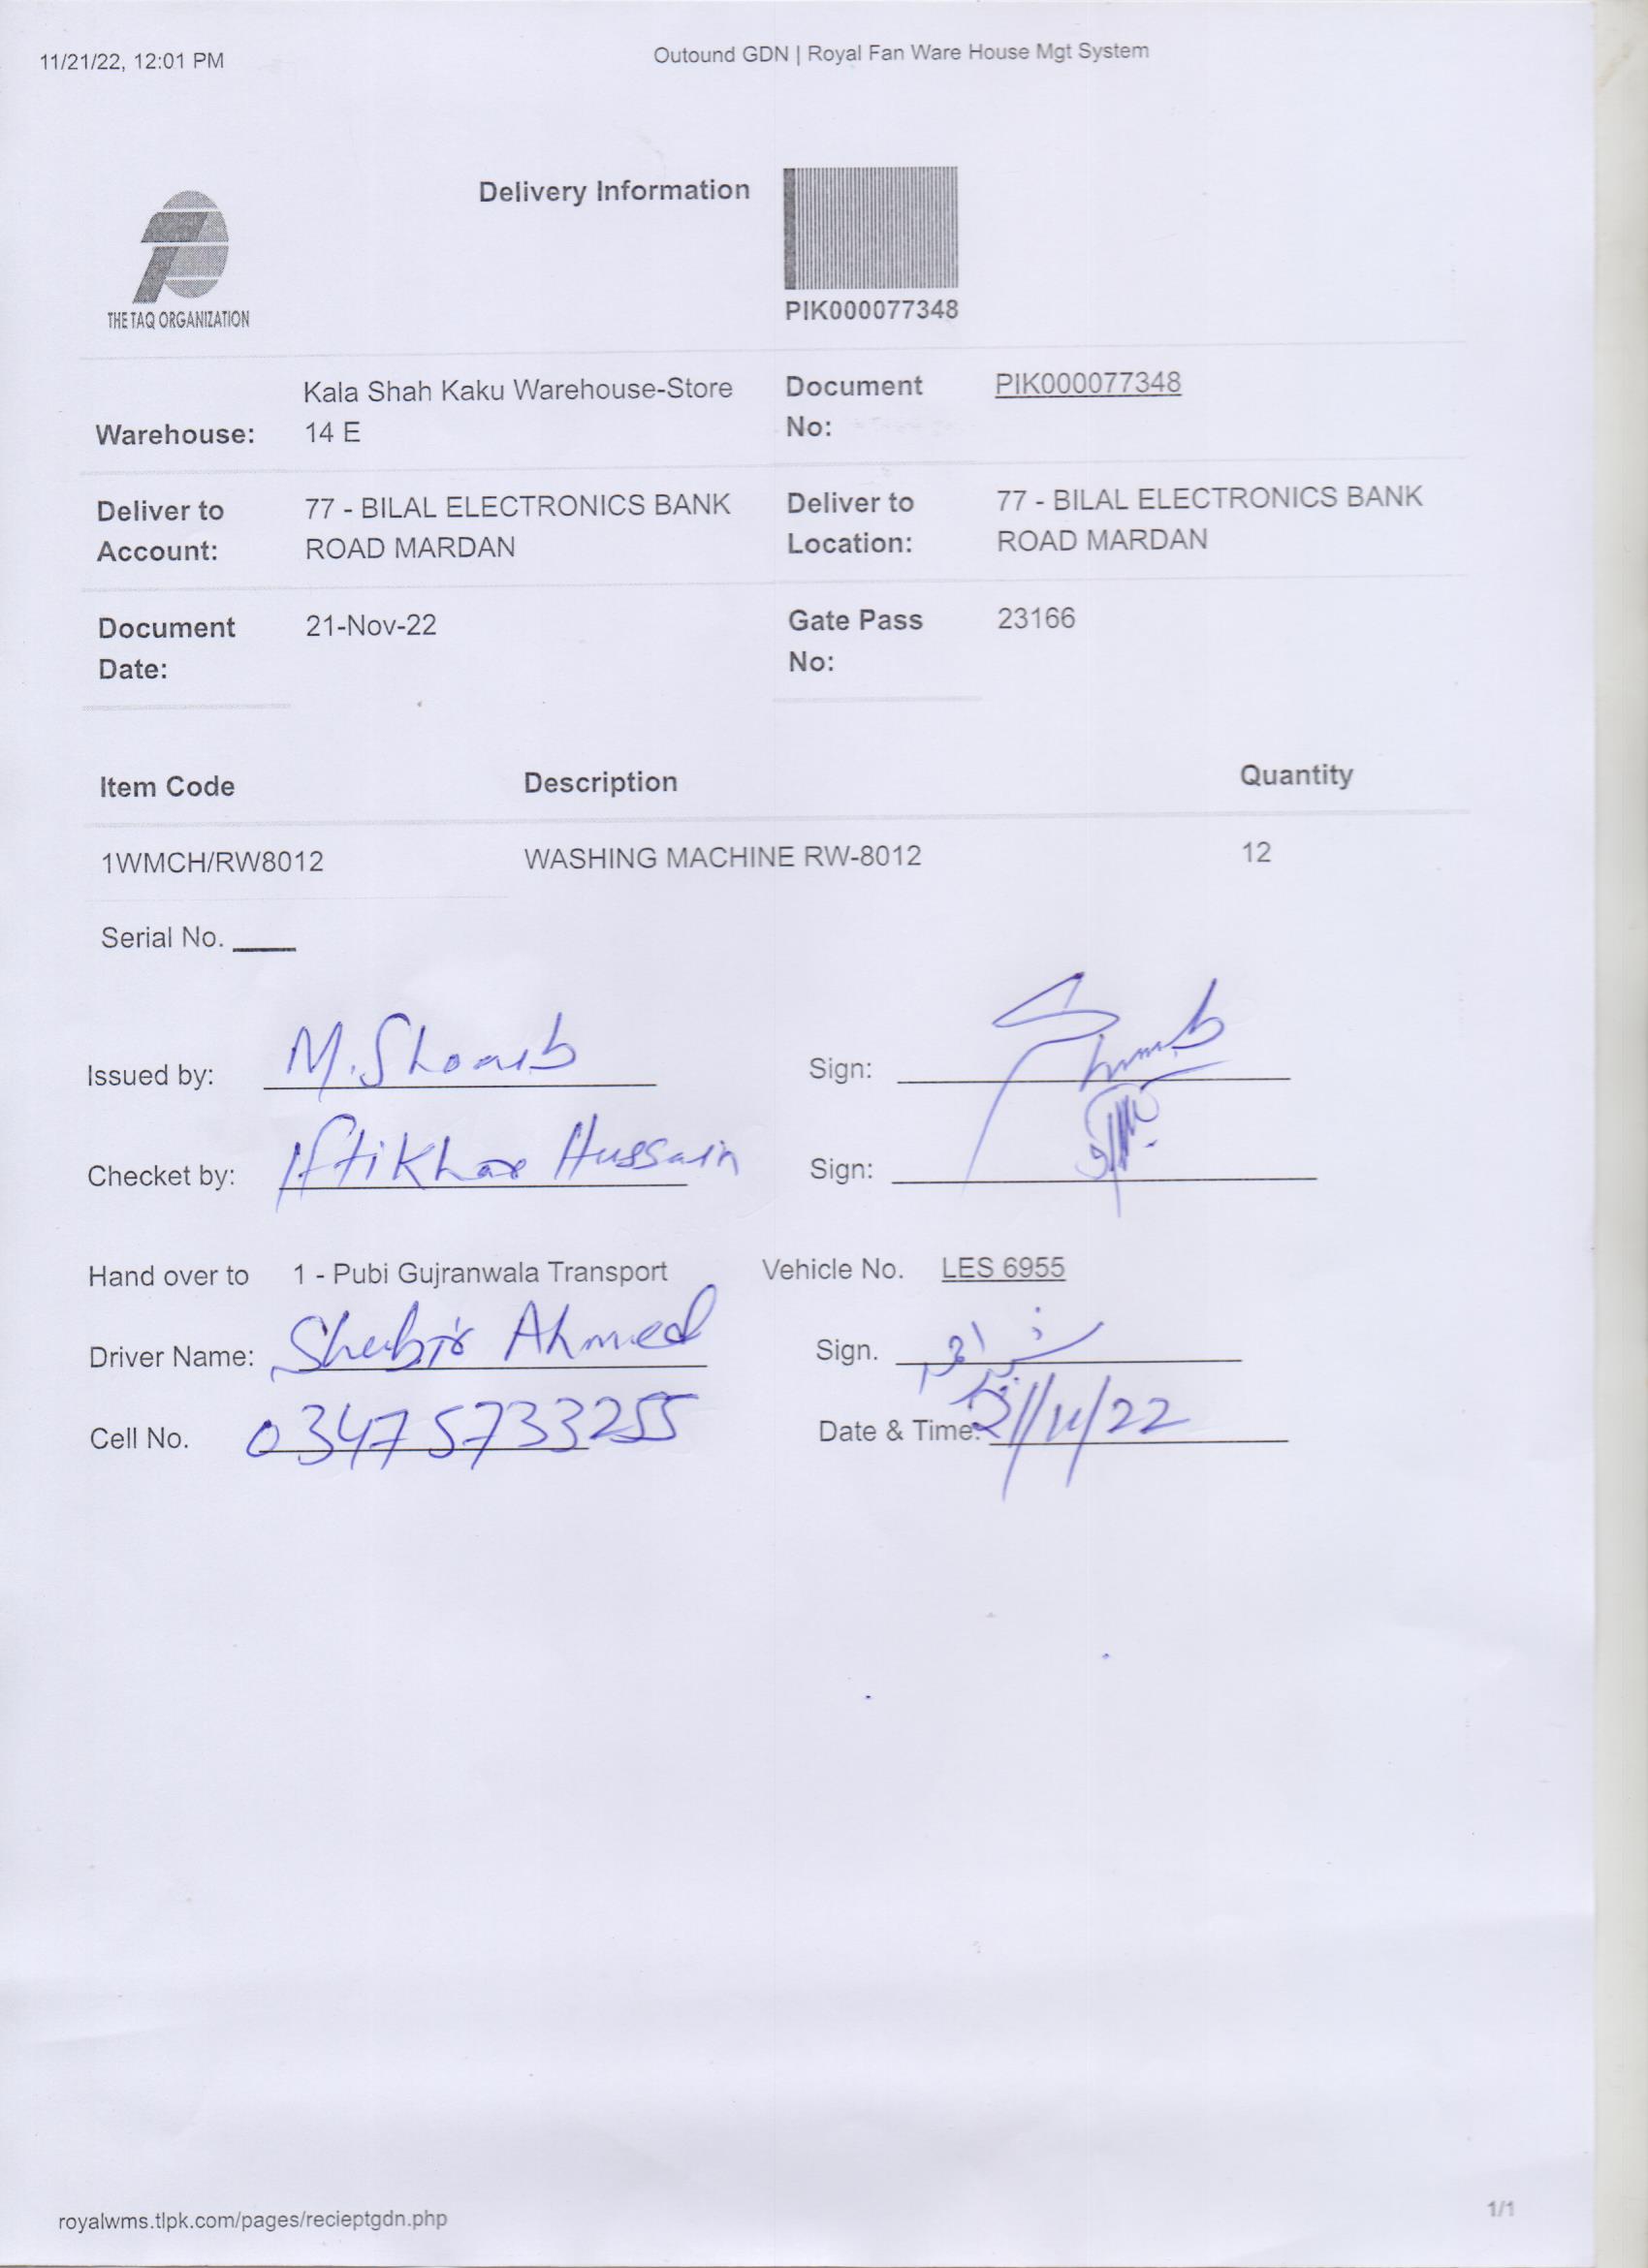 11/21/22, 12:01 PM
Outound GDN | Royal Fan Ware House Mgt System
Delivery Information
THE TAQ ORGANIZATION
PIK000077348
Warehouse: Kala Shah Kaku Warehouse-Store
14 E
Document
No: PIK000077348
Deliver to
Account: 77 - BILAL ELECTRONICS BANK
ROAD MARDAN
Deliver to
Location: 77 - BILAL ELECTRONICS BANK
ROAD MARDAN
Document
Date: 21-Nov-22
Gate Pass
No: 23166
Item Code Description Quantity
1WMCH/RW8012 WASHING MACHINE RW-8012 12
Serial No.
Issued by: M. Shoaib Sign:
Checket by: Iftikhar Hussain Sign:
Hand over to 1 - Pubi Gujranwala Transport Vehicle No. LES 6955
Driver Name: Shabir Ahmed Sign.
Cell No. 03475733255 Date & Time: 21/11/22
royalwms.tlpk.com/pages/recieptgdn.php
1/1